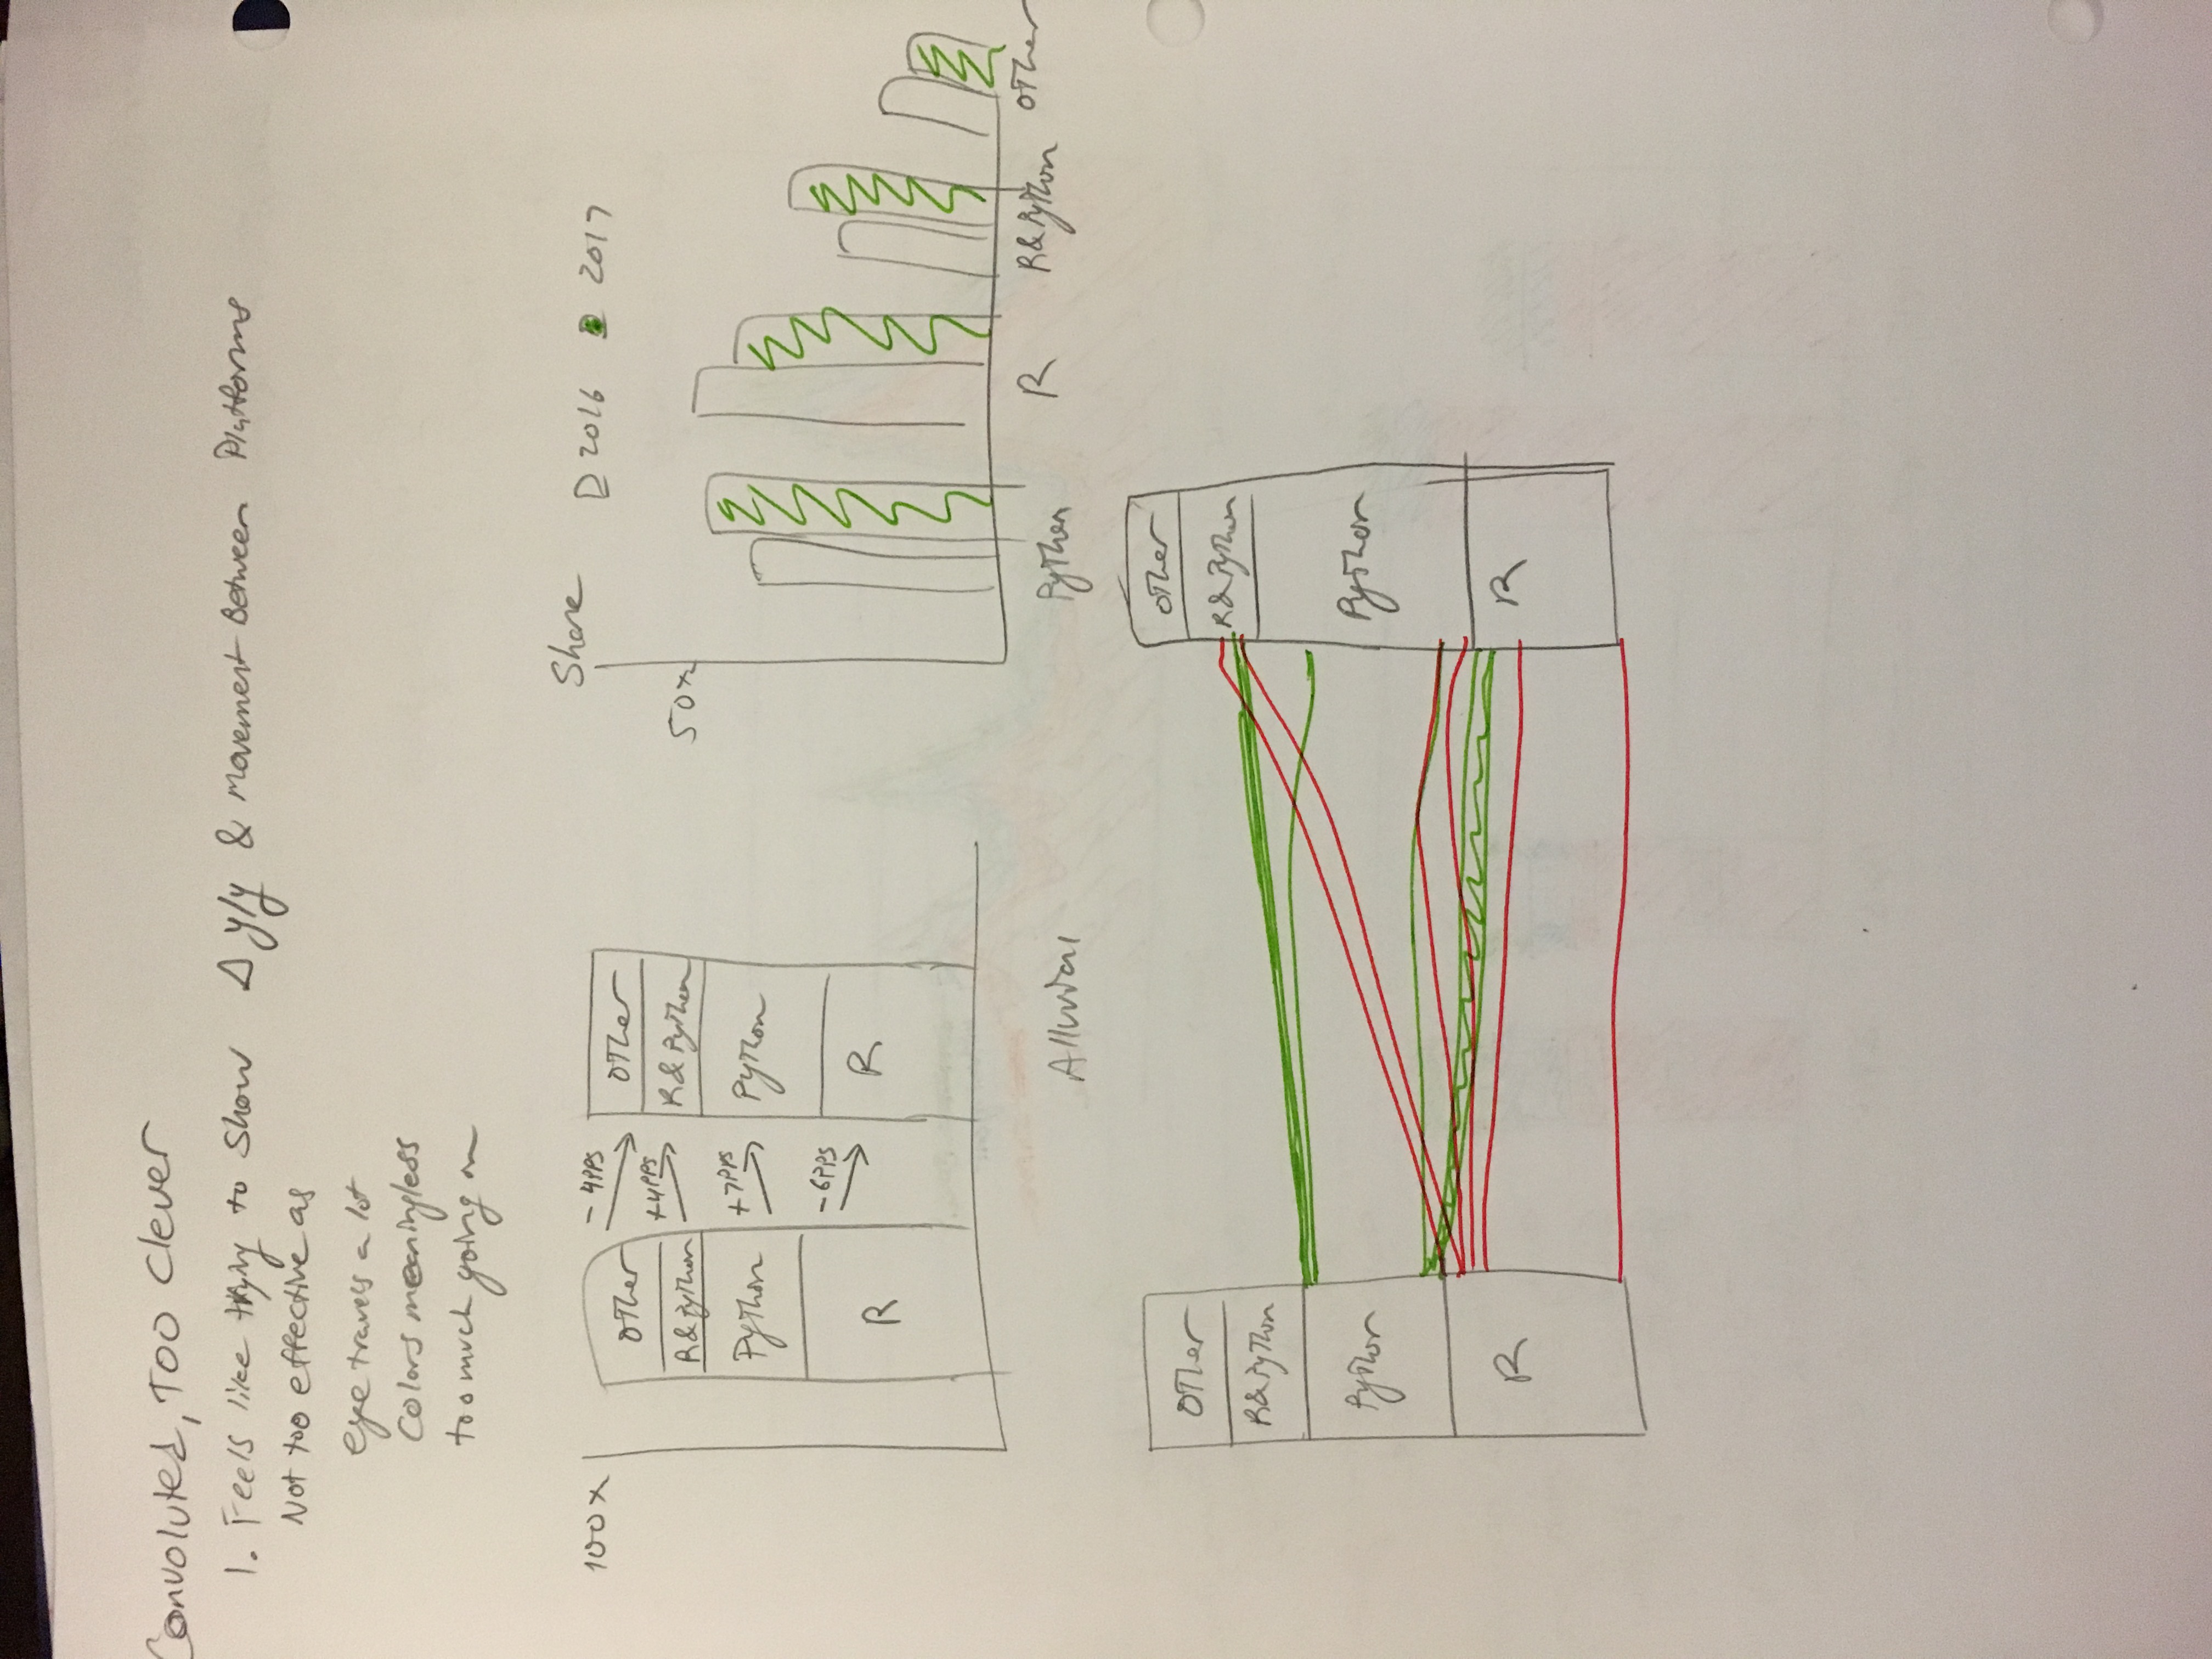 Convoluted, Too Clever
1. Feels like trying to Show Δ y/y & movement Between Platforms
Not too effective as
eye travels a lot
Colors meaningless
too much going on
100%
Other
R&Python
Python
R
- 4PPS
+4PPS
+7PPS
- 6PPS
Other
R&Python
Python
R
Share
2016 2017
50%
Python R R&Python Other
Alluvial
Other
R&Python
Python
R
Other
R&Python
Python
R